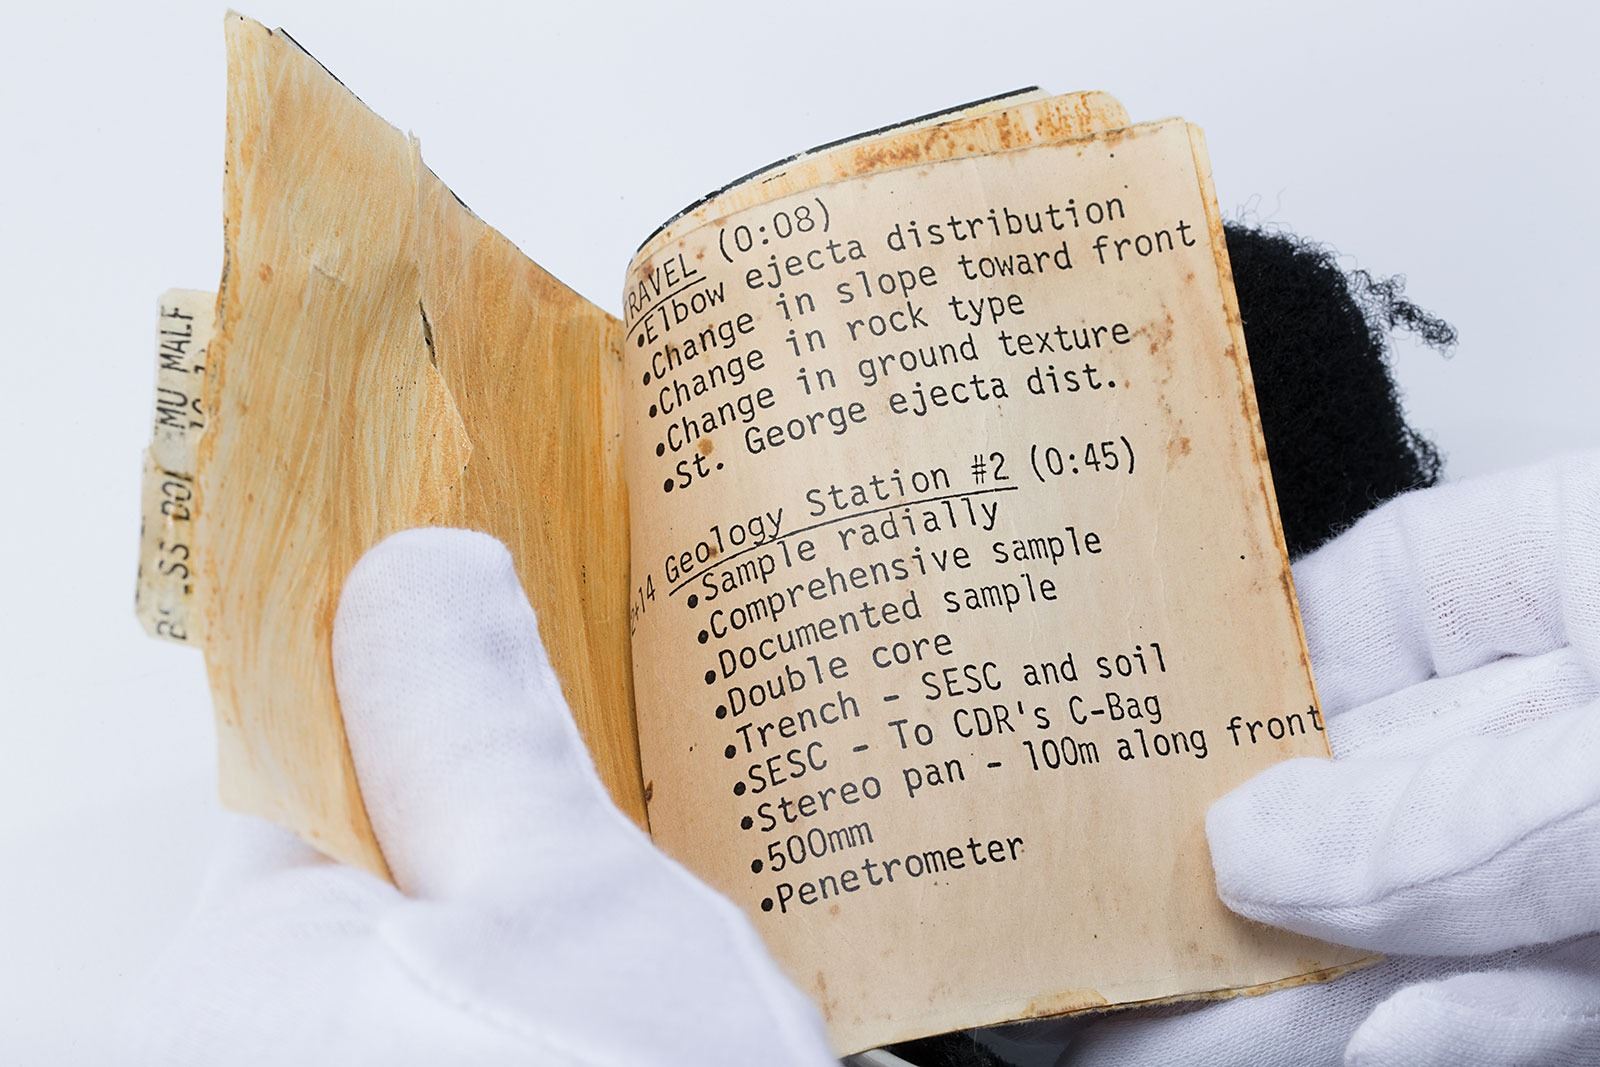 TRAVEL (0:08)
•Elbow ejecta distribution
•Change in slope toward front
•Change in rock type
•Change in ground texture
•St. George ejecta dist.
+14 Geology Station #2 (0:45)
•Sample radially
•Comprehensive sample
•Documented sample
•Double core
•Trench - SESC and soil
•SESC - To CDR's C-Bag
•Stereo pan - 100m along front
•500mm
•Penetrometer
MU MALF
SS